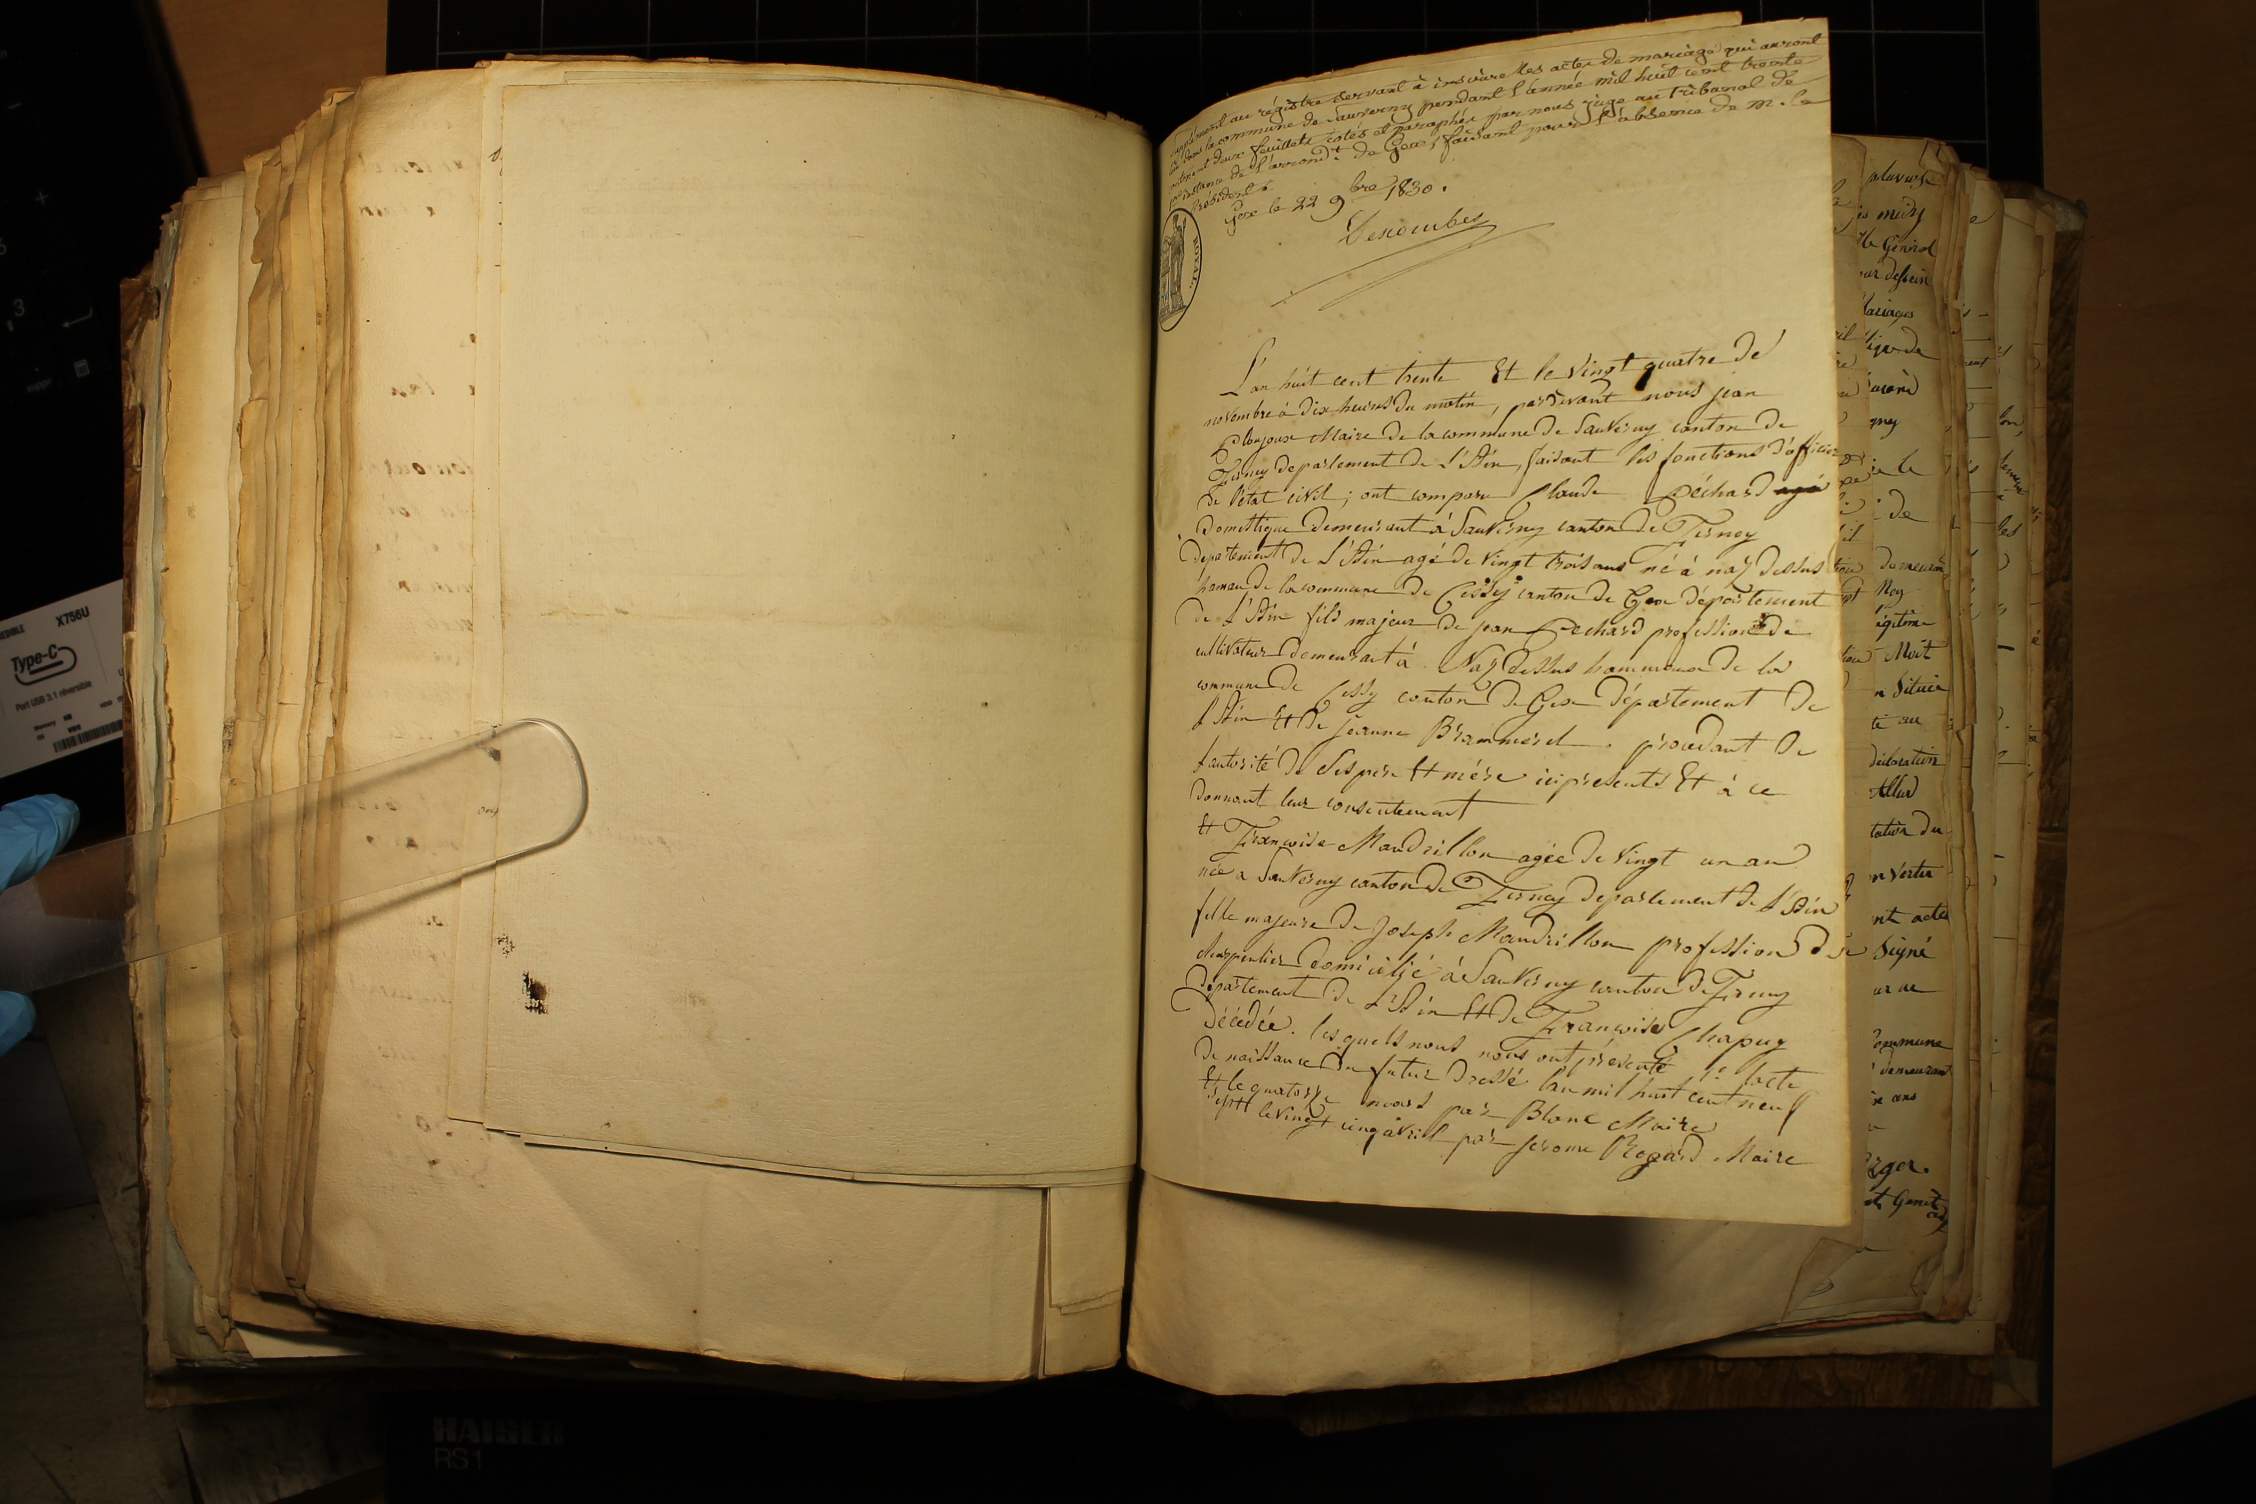 Supplément au régistre servant à inscrire les actes de mariage qui auront
lieu dans la commune de Sauverny pendant l'année mil huit cent trente
contenant deux feuillets cotés et paraphés par nous juge au tribunal de
1re instance de l'arrondt de Gex, faisant pour l'absence de M. le
Président.
Gex le 22 9bre 1830.
Descombes
ROYAL
L'an huit cent trente Et le vingt quatre de
novembre à dix heures du matin, pardevant nous jean
Ploujoux Maire de la commune de Sauverny canton de
Ferney departement de L'Ain, faisant les fonctions d'officier
de l'état civil; ont comparu Claude Péchard agé
Domestique demeurant à Sauverny canton de Ferney
departement de L'Ain agé de vingt trois ans né à naz dessus
hameau de la commune de Cessy canton de Gex département
de L'Ain fils majeur de jean Pechard profession de
cultivateur demeurant à Naz dessus hammeau de la
commune de Cessy canton de Gex département de
L'Ain Et de jeanne Brammerel . procedant de
l'autorité de Ses pere Et mére ici presents Et à ce
donnant leur consentement
Et Francoise Mandrillon agée de vingt un an
née a Sauverny canton de Ferney departement de L'Ain
fille majeure de Joseph Mandrillon profession de
charpentier domicilié à Sauverny canton de Ferney
departement de L'Ain Et de Francoise Chapuy
Décédée. les quels nous nous ont présenté 1° l'acte
de naissance du futur dressé l'an mil huit cent neuf
Et le quatorze mars par Blanc Maire
sept le vingt cinq avril par jerome Regard Maire
X756U
Type-C
Port USB 3.1 réversible
KAISER
RS1